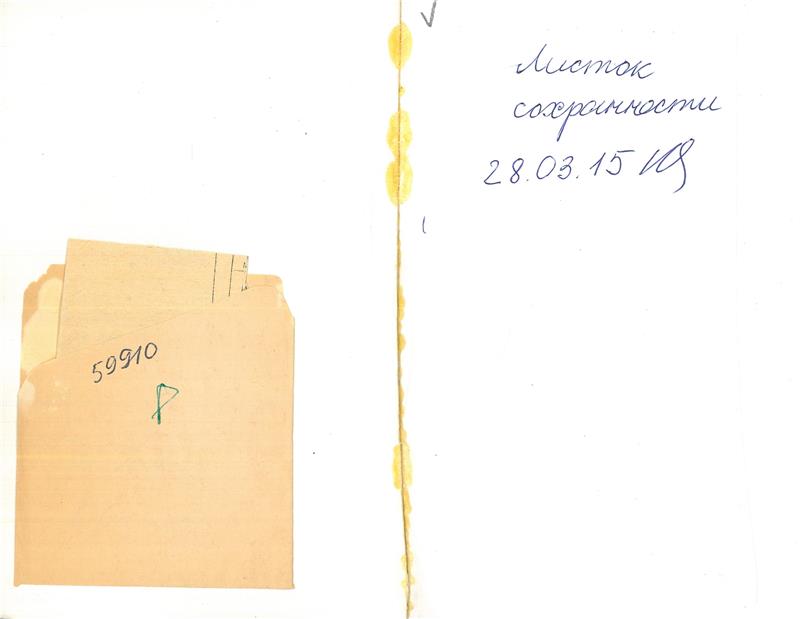 Листок
сохранности
28.03.15
59910
Р